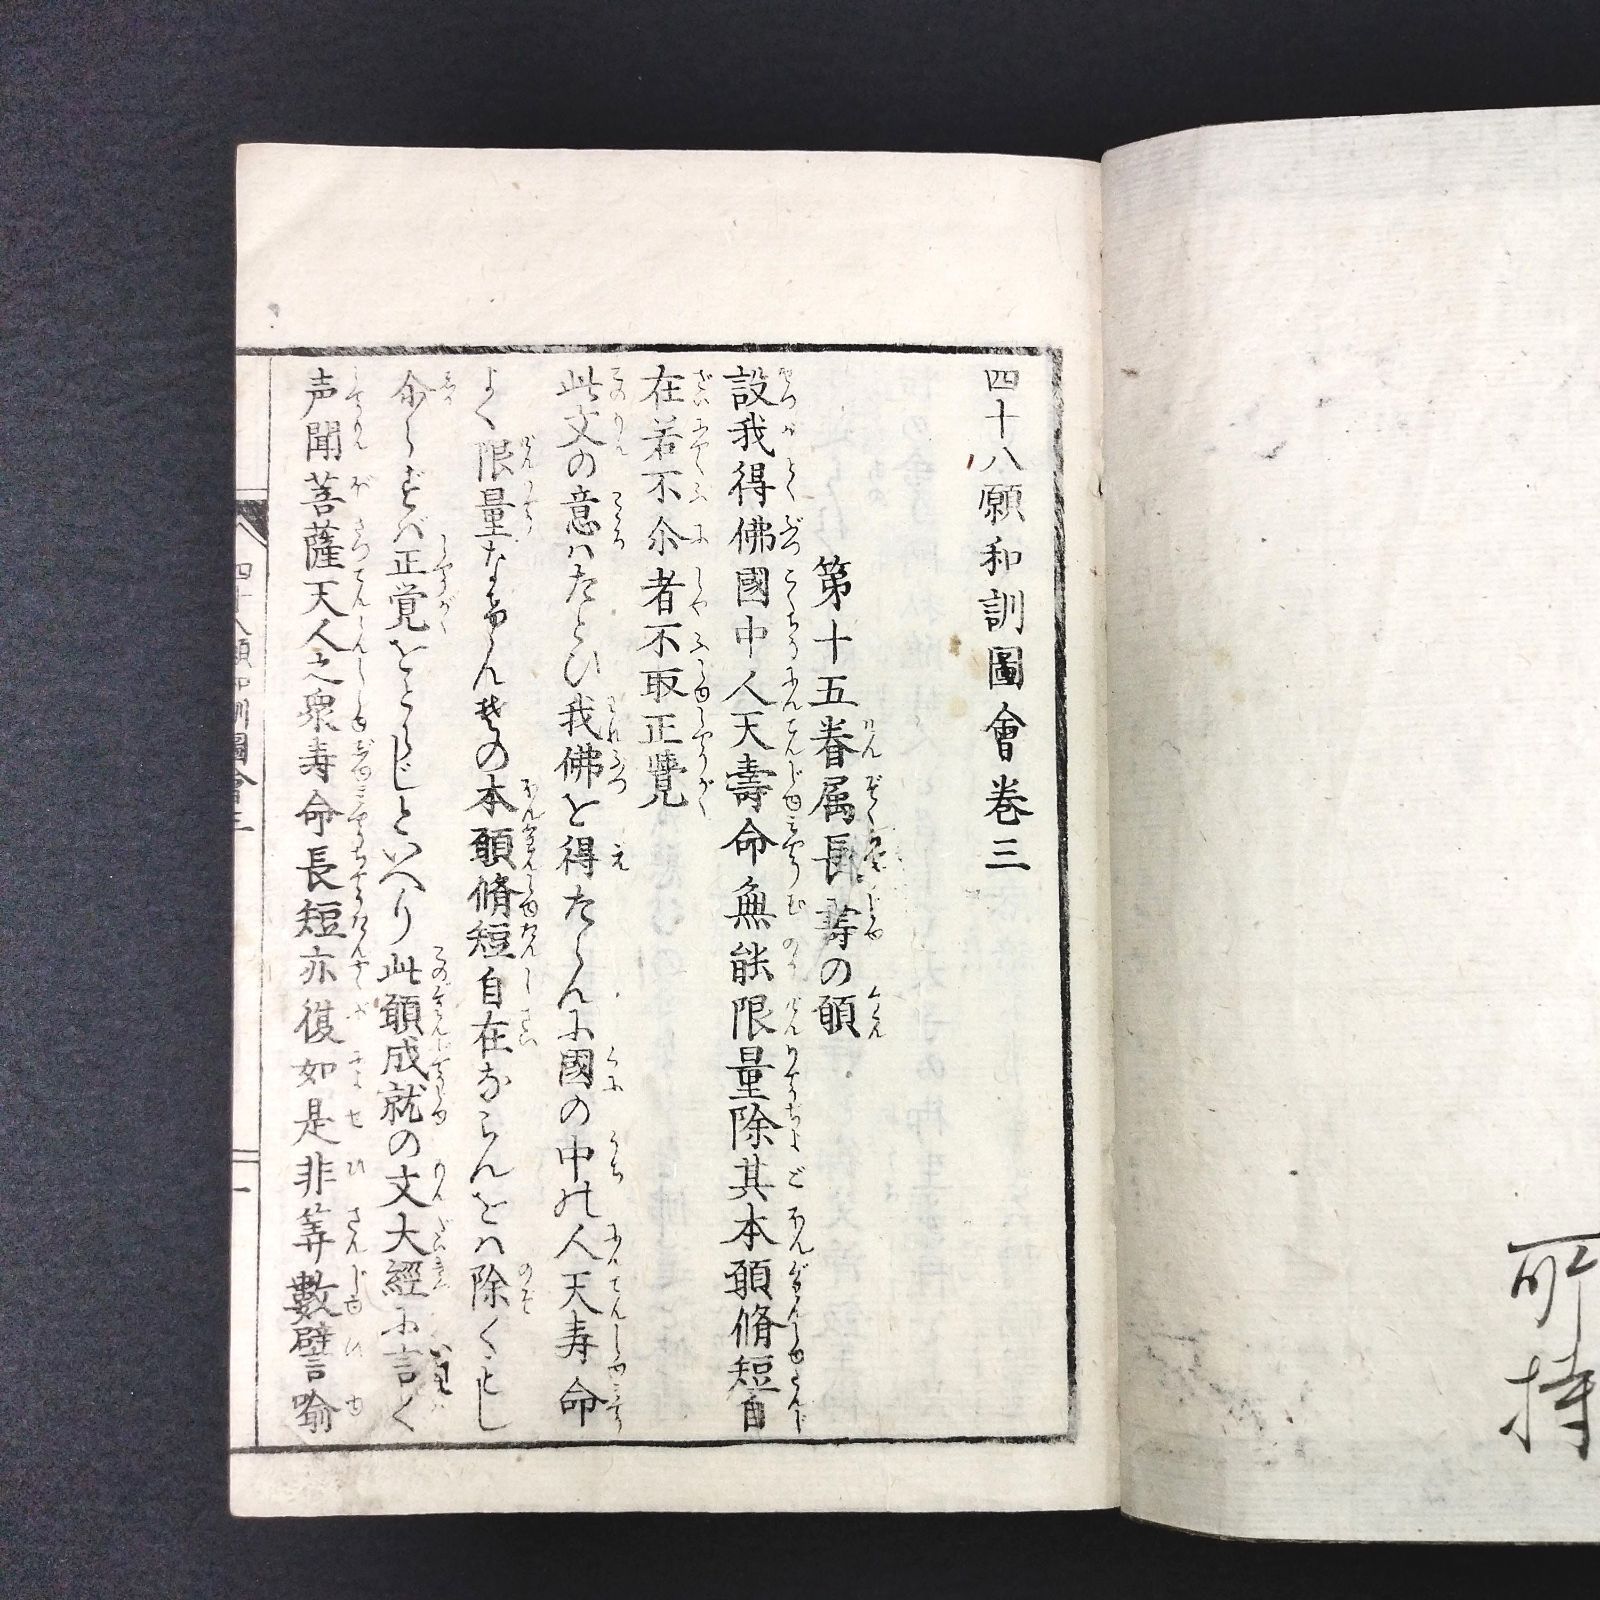 四十八願和訓圖會巻三
第十五眷属長壽の願
設我得佛國中人天壽命無能限量除其本願脩短自
在若不尒者不取正覺
此文の意ハたとひ我佛を得たらんに國の中の人天寿命
よく限量なけん其の本願脩短自在ならんをハ除くもし
尒らずバ正覚をとらじといへり此願成就の文大經に言く
声聞菩薩天人之衆寿命長短亦復如是非筭數譬喻
四十八願和訓圖會三
一
所持